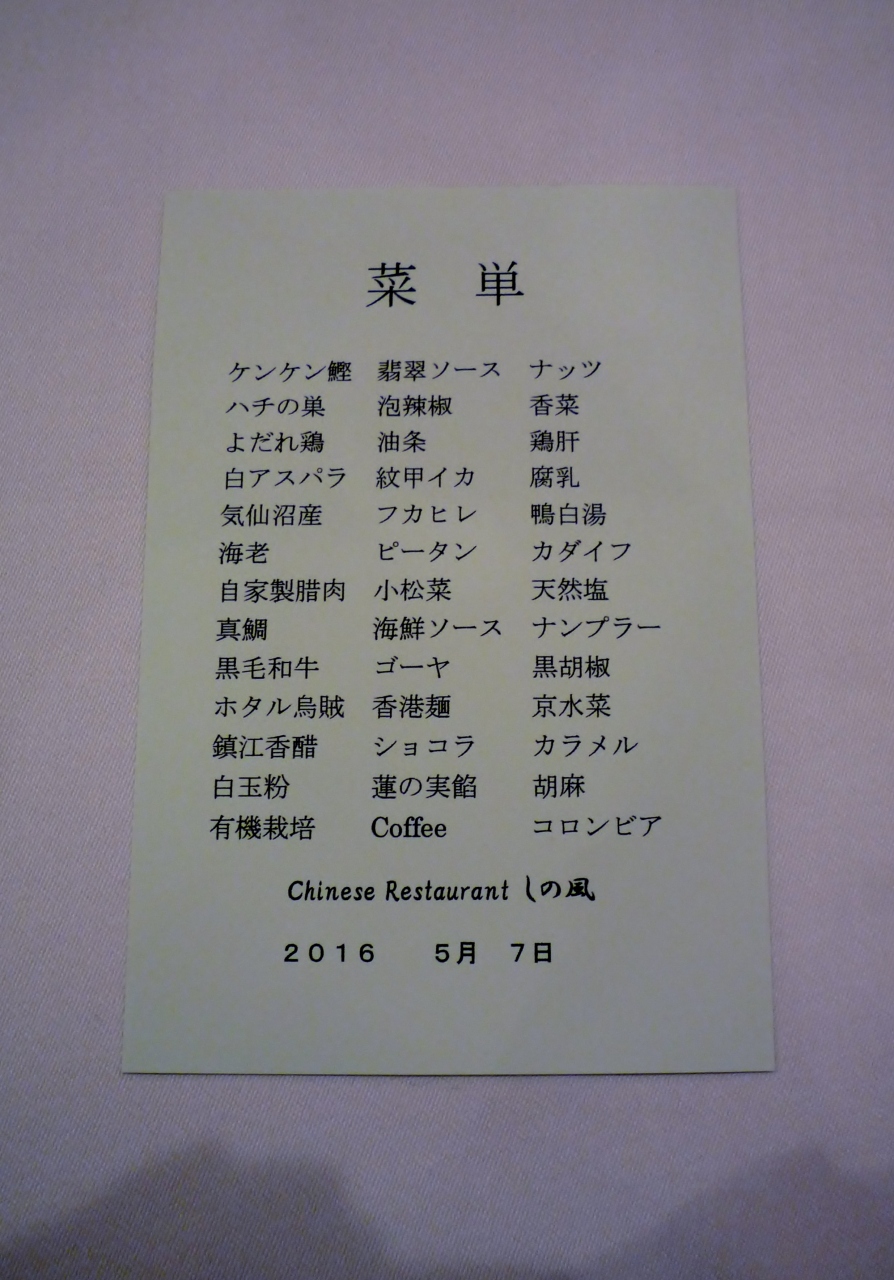 菜 単
ケンケン鰹 翡翠ソース ナッツ
ハチの巣 泡辣椒 香菜
よだれ鶏 油条 鶏肝
白アスパラ 紋甲イカ 腐乳
気仙沼産 フカヒレ 鴨白湯
海老 ピータン カダイフ
自家製腊肉 小松菜 天然塩
真鯛 海鮮ソース ナンプラー
黒毛和牛 ゴーヤ 黒胡椒
ホタル烏賊 香港麺 京水菜
鎮江香醋 ショコラ カラメル
白玉粉 蓮の実餡 胡麻
有機栽培 Coffee コロンビア
Chinese Restaurant しの風
２０１６ ５月 ７日